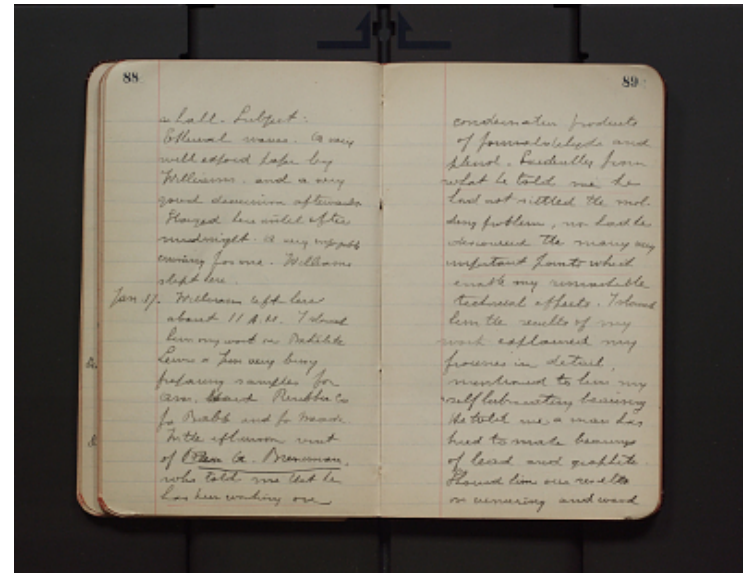 88
a hall. Subject:
Ethereal waves. A very
well exposed paper by
Williams. and a very
good discussion afterwards
Stayed here until after
midnight. A very enjoyable
evening for me. Williams
slept here.
Jan. 17. Williams left here
about 11 A.M. I showed
him my work on Bakelite
Lewis & Jim very busy
preparing samples for
Am. Hard Rubber Co
for and for
In the afternoon visit
of A. Breneman,
who told me that he
has been working on
89
condensation products
of formaldehyde and
phenol. Evidently from
what he told me he
had not settled the mol-
ding problem, nor had he
discovered the many very
important points which
enable my remarkable
technical effects. I showed
him the results of my
work explained my
process in detail,
mentioned to him my
self lubricating bearing
He told me a man has
tried to make bearings
of lead and graphite.
Showed him our results
on veneering and wood